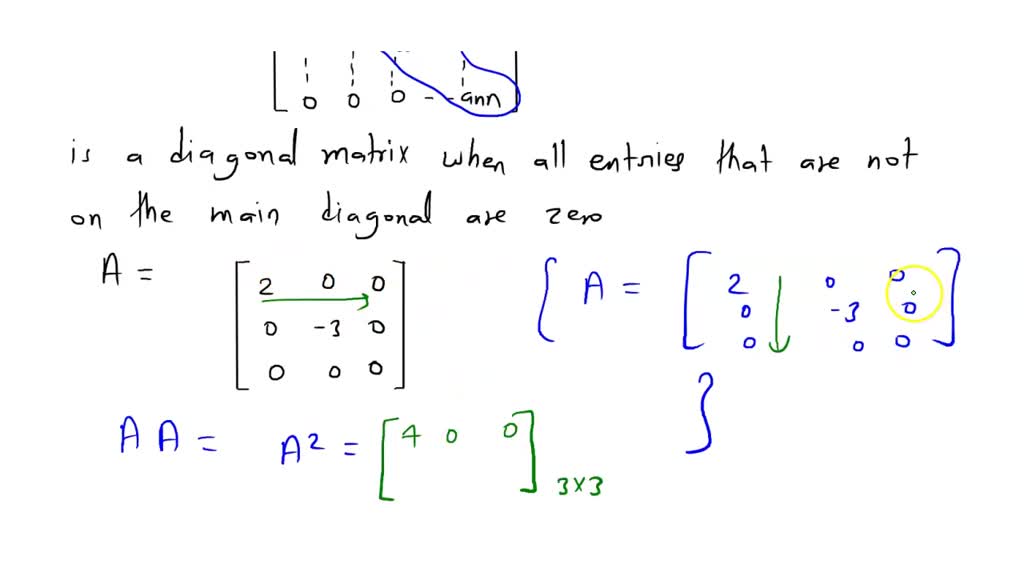 0 0 0 - - ann
is a diagonal matrix when all entries that are not
on the main diagonal are zero
A = [ 2 0 0
0 -3 0
0 0 0 ]
{ A = [ 2 0 0
0 -3 0
0 0 0 ]
}
A A = A² = [ 4 0 0 ] 3×3